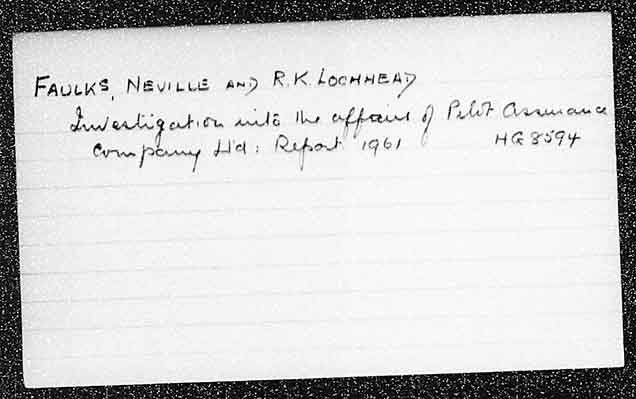 FAULKS, NEVILLE AND R.K. LOCHHEAD
Investigation into the affairs of Pilot Assurance
Company Ltd: Report 1961 HG 8594